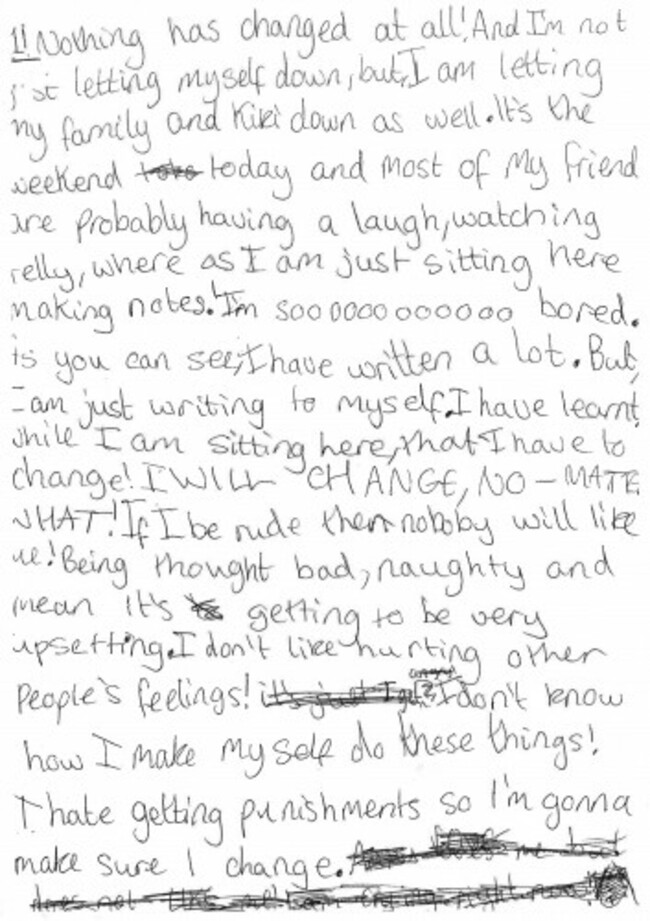 1! Nothing has changed at all! And I'm not
just letting myself down, but, I am letting
my family and Kiki down as well. It's the
weekend today and most of my friend
are probably having a laugh, watching
telly, where as I am just sitting here
making notes. I'm soooooooooooo bored.
As you can see, I have written a lot. But,
I am just writing to myself. I have learnt,
while I am sitting here, that I have to
change! I WILL CHANGE, NO-MATE
WHAT! If I be rude then nobody will like
me! Being thought bad, naughty and
mean it's getting to be very
upsetting. I don't like hurting other
People's feelings! I don't know
how I make my self do these things!
I hate getting punishments so I'm gonna
make sure I change.